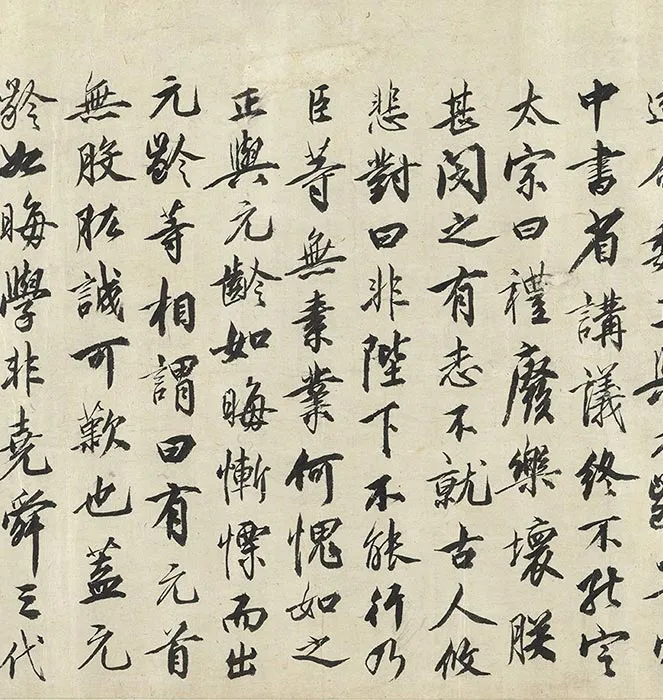 中書省講議終不能定
太宗曰禮廢樂壞朕
甚閔之有志不就古人攸
悲對曰非陛下不能行乃
臣等無素業何愧如之
正與元齡如晦慚慄而出
元齡等相謂曰有元首
無股肱誠可歎也蓋元
齡如晦學非堯舜三代